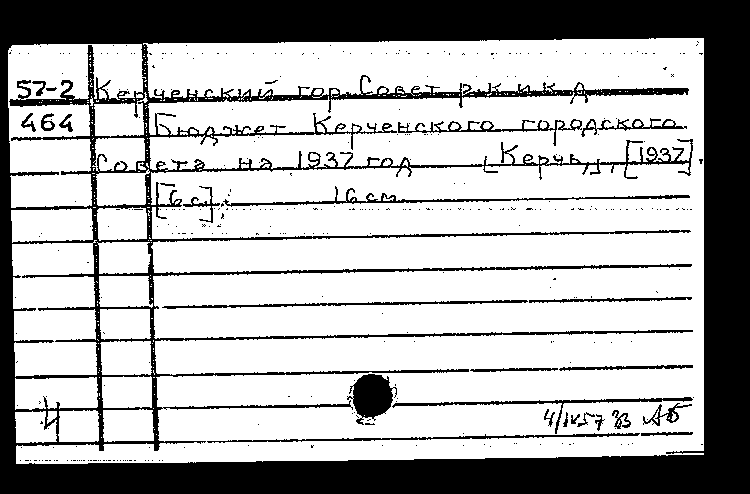 57-2 Керченский гор. Совет р.к и к д
464 Бюджет Керченского городского
Совета на 1937 год [Керчь,], [1937].
[6 с.]; 16 см
И